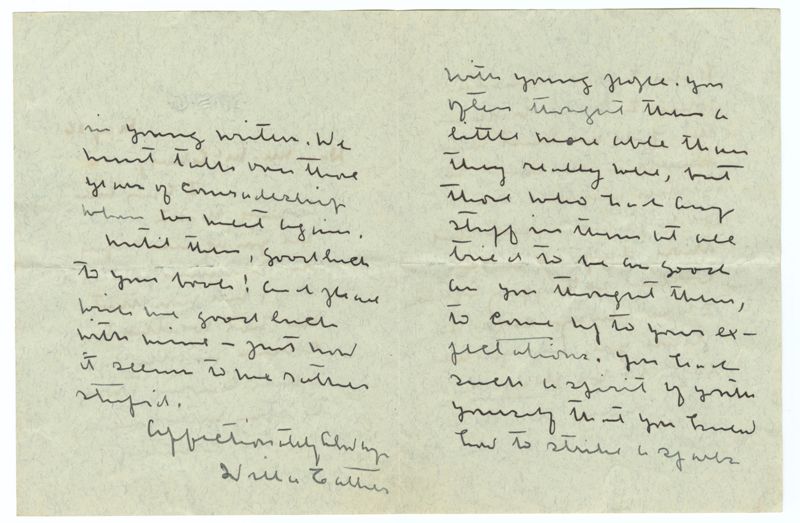 with young people. You
often thought them a
little more able than
they really were, but
those who had any
stuff in them at all
tried to be as good
as you thought them,
to come up to your ex-
pectations. You had
such a spirit of youth
yourself that you knew
how to strike a spark
in young writers. We
must talk over those
years of comradeship
when we meet again.
Until then, good luck
to your book! And please
wish me good luck
with mine — just now
it seems to me rather
stupid.
Affectionately always
Willa Cather